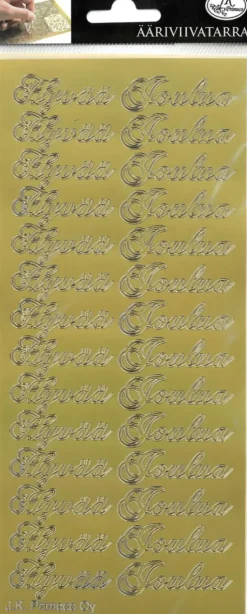 ÄÄRIVIIVATARRA
Hyvää Joulua
Hyvää Joulua
Hyvää Joulua
Hyvää Joulua
Hyvää Joulua
Hyvää Joulua
Hyvää Joulua
Hyvää Joulua
Hyvää Joulua
Hyvää Joulua
Hyvää Joulua
Hyvää Joulua
Hyvää Joulua
Hyvää Joulua
J.K. Primeco Oy